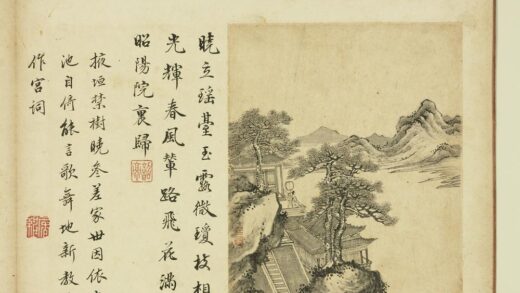 曉立瑤臺玉露微瓊枝相
光輝春風輦路飛花滿
昭陽院裏歸
掖垣禁樹曉參差家世因依
池自倚能言歌舞地新教
作宮詞